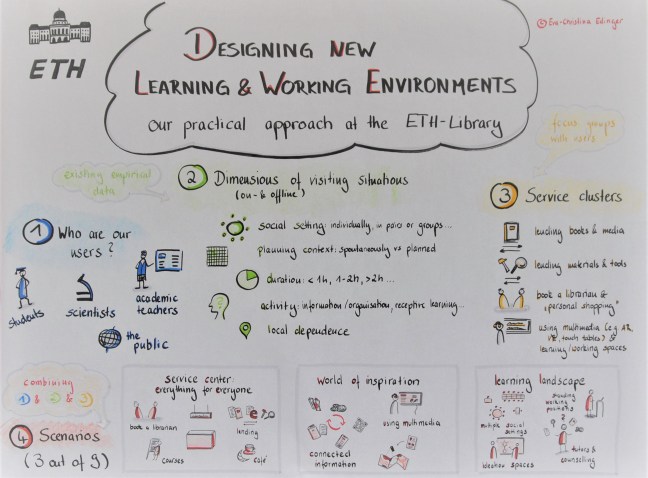 © Eva-Christina Edinger
ETH
DESIGNING NEW
LEARNING & WORKING ENVIRONMENTS
our practical approach at the ETH-Library
focus groups
with
existing empirical
data
2 Dimensions of visiting situations
(on- & offline)
social setting: individually, in pairs or groups...
planning context: spontaneously vs planned
duration: < 1h, 1-2h, >2h ...
activity: information/organisation, receptive learning...
local dependence
1 Who are our
users?
students
scientists
academic
teachers
the
public
3 Service clusters
lending books & media
lending materials & tools
book a librarian &
"personal shopping"
using multimedia (e.g. AR,
VR, touch tables) &
learning/working spaces
combining
1 & 2 & 3
4 Scenarios
(3 out of 9)
service center
everything for everyone
book a librarian
lending
courses
café
world of inspiration
using multimedia
connected
information
learning landscape
standing
working
positions
multiple social
settings
ideation spaces
tutors &
counselling